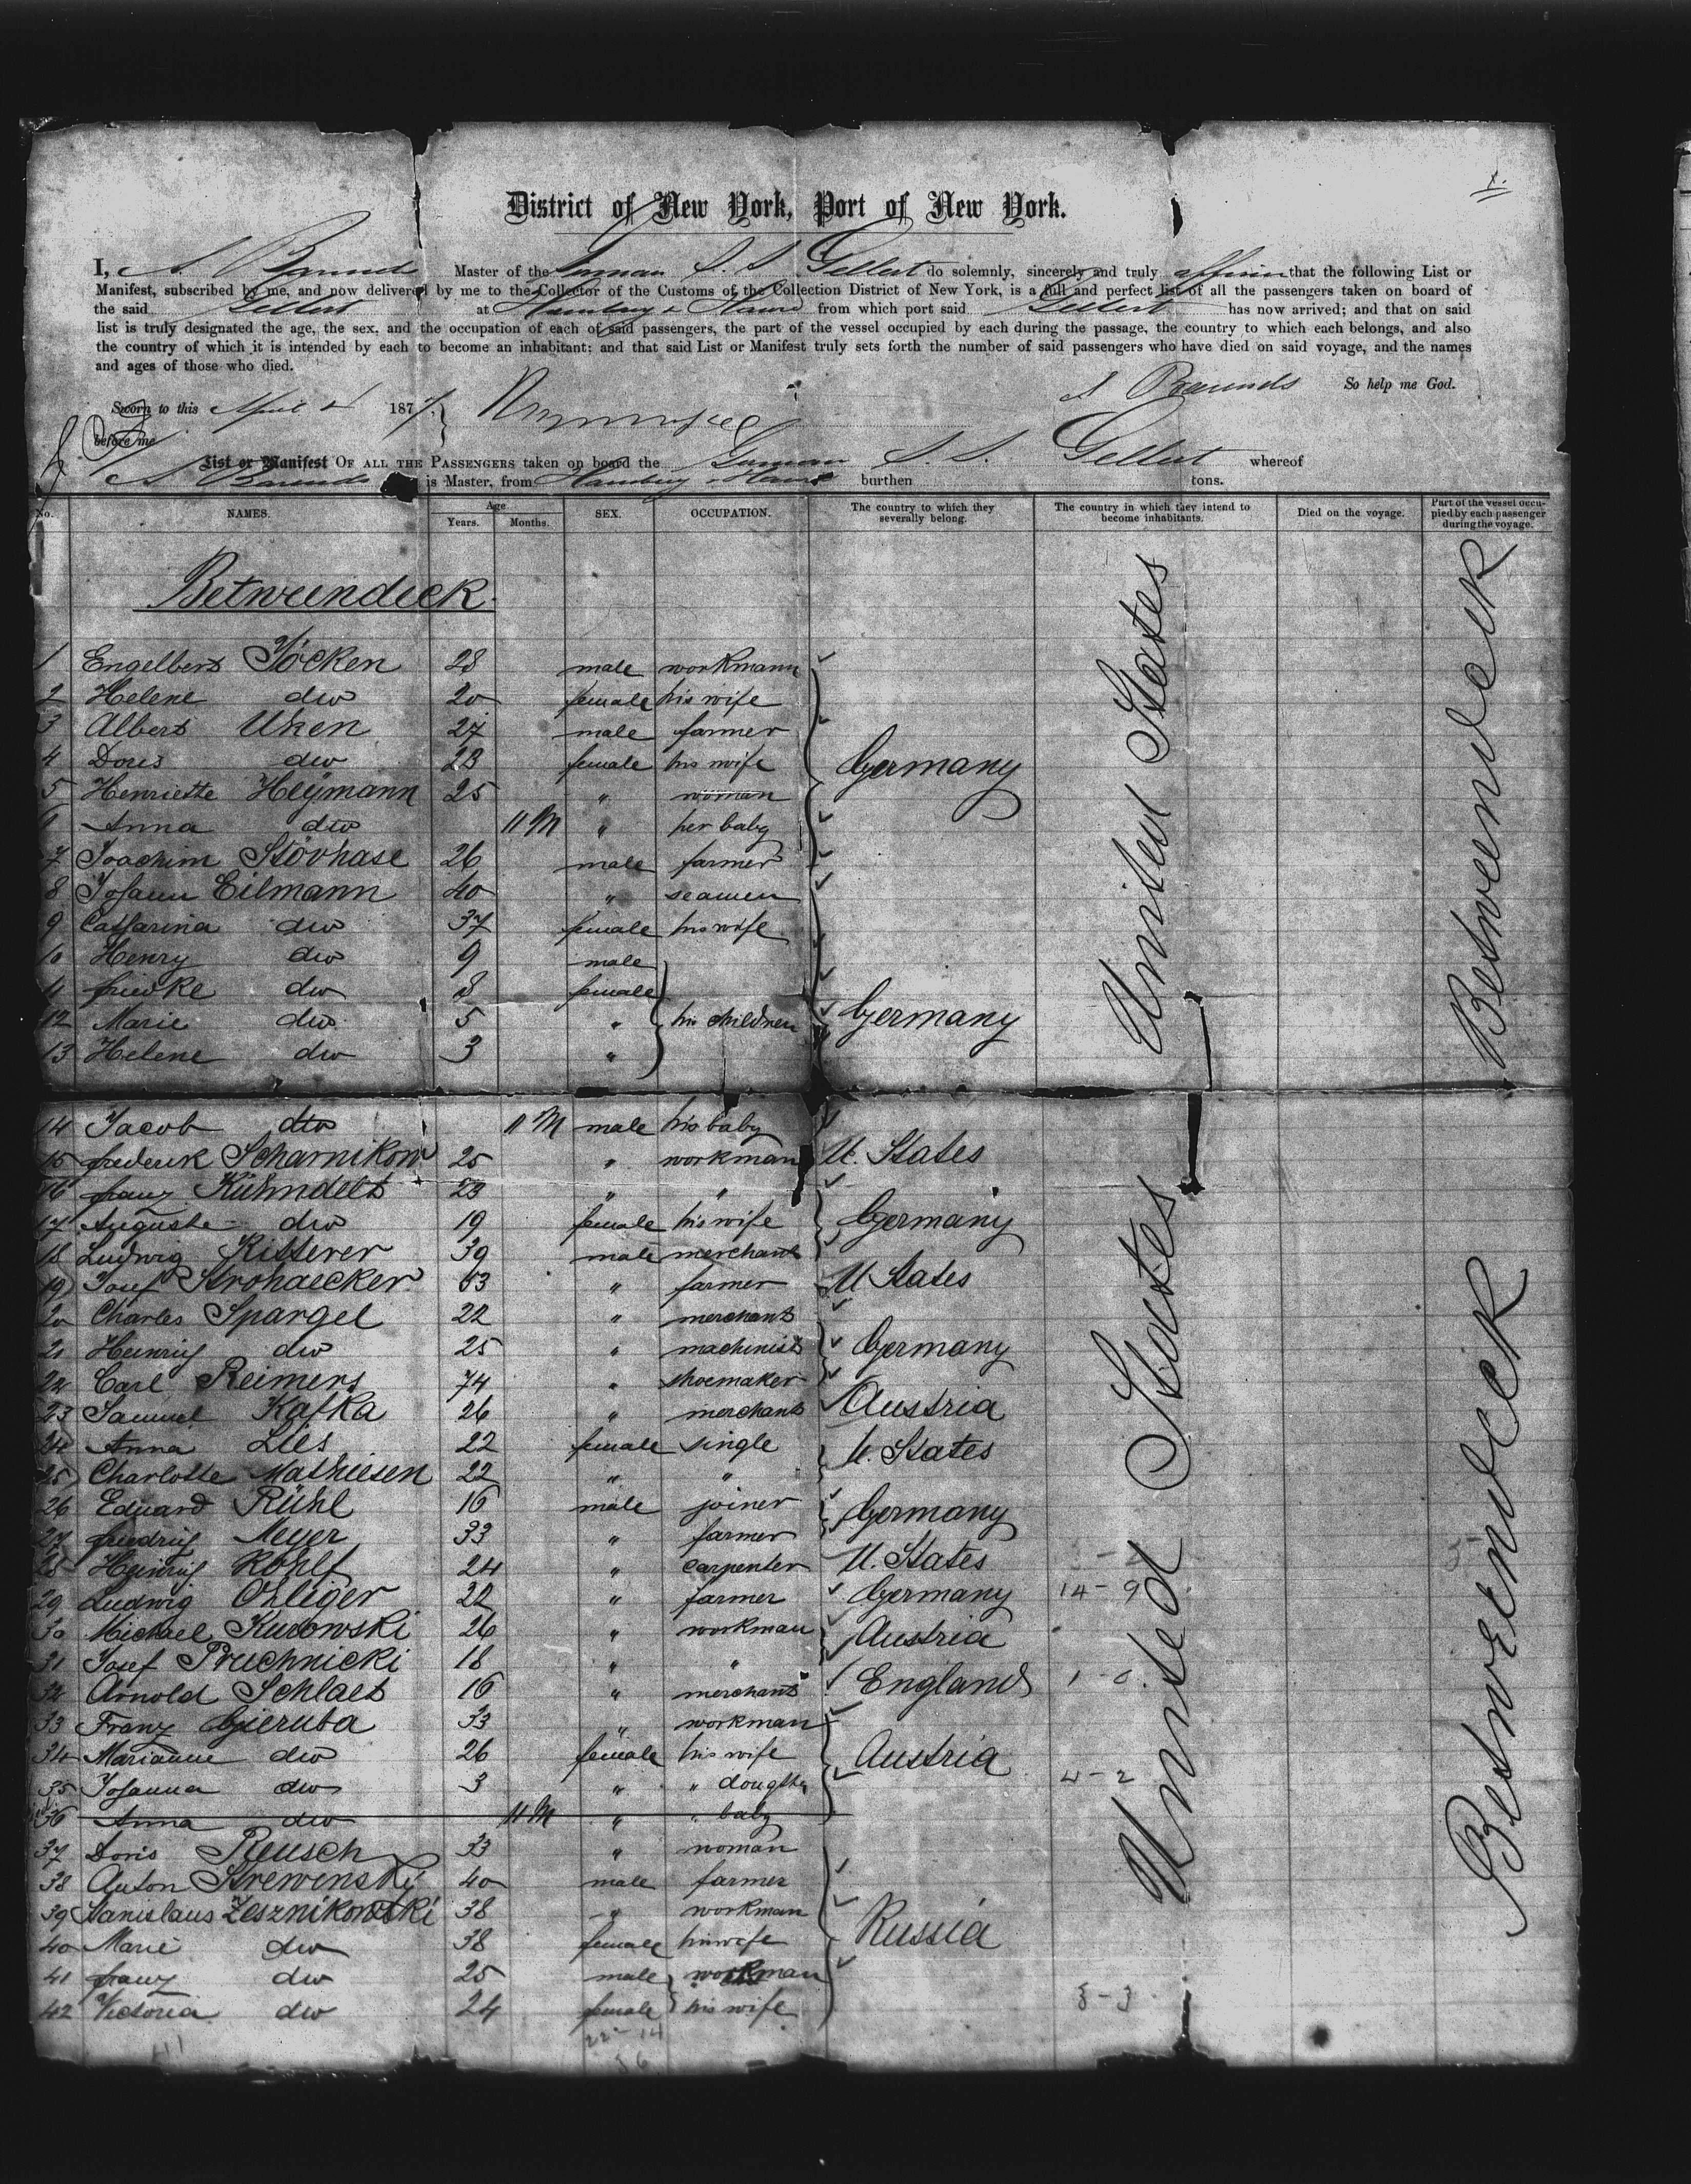 1.
District of New York, Port of New York.
I, A. Barends Master of the German S. S. Gellert do solemnly, sincerely and truly affirm that the following List or
Manifest, subscribed by me, and now delivered by me to the Collector of the Customs of the Collection District of New York, is a full and perfect list of all the passengers taken on board of
the said Gellert at Hamburg & Havre from which port said Gellert has now arrived; and that on said
list is truly designated the age, the sex, and the occupation of each of said passengers, the part of the vessel occupied by each during the passage, the country to which each belongs, and also
the country of which it is intended by each to become an inhabitant; and that said List or Manifest truly sets forth the number of said passengers who have died on said voyage, and the names
and ages of those who died.
A Barends So help me God.
Sworn to this April 187
before me
List or Manifest OF ALL THE PASSENGERS taken on board the German S. S. Gellert whereof
A. Barends is Master, from Hamburg & Havre burthen tons.
No. NAMES. Age Years. Months. SEX. OCCUPATION. The country to which they severally belong. The country in which they intend to become inhabitants. Died on the voyage. Part of the vessel occupied by each passenger during the voyage.
Betweendeck.
1 Engelbert Töcken 28 male workmann
2 Helene dto 20 female his wife
3 Albert Uken 27 male farmer
4 Doris dto 23 female his wife Germany
5 Henriette Heymann 25 " woman
6 Anna dto 11 M " her baby
7 Joachim Stövhase 26 male farmer
8 Johann Eilmann 40 " seamen
9 Catharina dto 37 female his wife
10 Henry dto 9 male
11 friedke dto 8 female
12 Marie dto 5 " his children Germany
13 Helene dto 3 "
United States
Betweendeck
14 Jacob dto 11 M male his baby
15 frederik Scharnikow 25 " workman U. States
16 franz Kühndelt 23 " "
17 Auguste dto 19 female his wife Germany
18 Ludwig Ritterer 39 male merchant
19 Josef Strohaecker 53 " farmer U States
20 Charles Spargel 22 " merchant
21 Heinrich dto 25 " machinist Germany
22 Carl Reimers 74 " shoemaker
23 Samuel Kafka 26 " merchant Austria
24 Anna Lies 22 female single U. States
25 Charlotte Mathiesen 22 " "
26 Eduard Rühl 16 male joiner Germany
27 friedrich Meyer 33 " farmer
28 Heinrich Rohlf 24 " carpenter U. States
29 Ludwig Ohliger 22 " farmer Germany 14-9
30 Michael Kurowski 26 " workman Austria
31 Josef Pruchnicki 18 " "
32 Arnold Schlaet 16 " merchant England 1-0
33 Franz Gieruba 33 " workman
34 Marianne dto 26 female his wife Austria
35 Johanna dto 3 " " doughter 4-2
36 Anna dto 11 M " " baby
37 Doris Reusch 33 " woman
38 Anton Strewensky 40 male farmer
39 Stanislaus Zesznikowski 38 " workman Russia
40 Marie dto 38 female his wife
41 franz dto 25 male workman
42 Victoria dto 24 female his wife 3-3
United States
Betweendeck
41 22-14